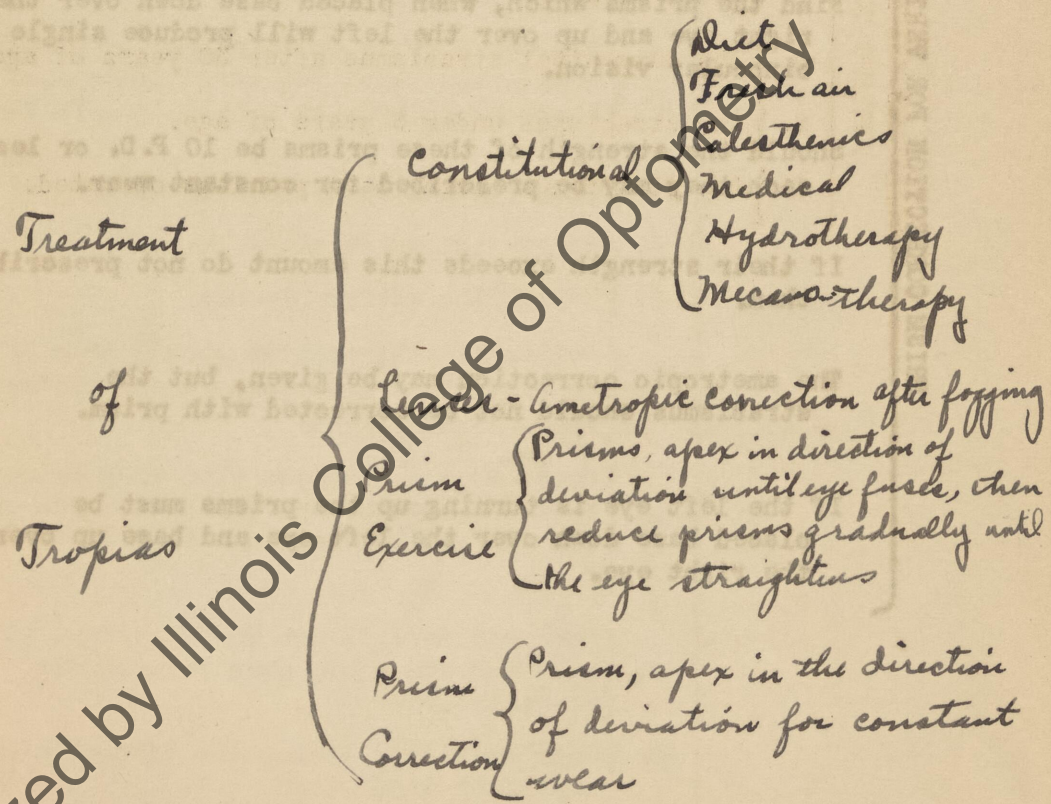 Treatment
of
Tropias
Constitutional
Diet
Fresh air
Calesthenics
Medical
Hydrotherapy
Mecano-therapy
Lenses - Ametropic correction after fogging
Prism
Exercise
Prisms, apex in direction of
deviation until eye fuses, then
reduce prisms gradually until
the eye straightens
Prism
Correction
Prism, apex in the direction
of deviation for constant
wear
zed by Illinois College of Optometry